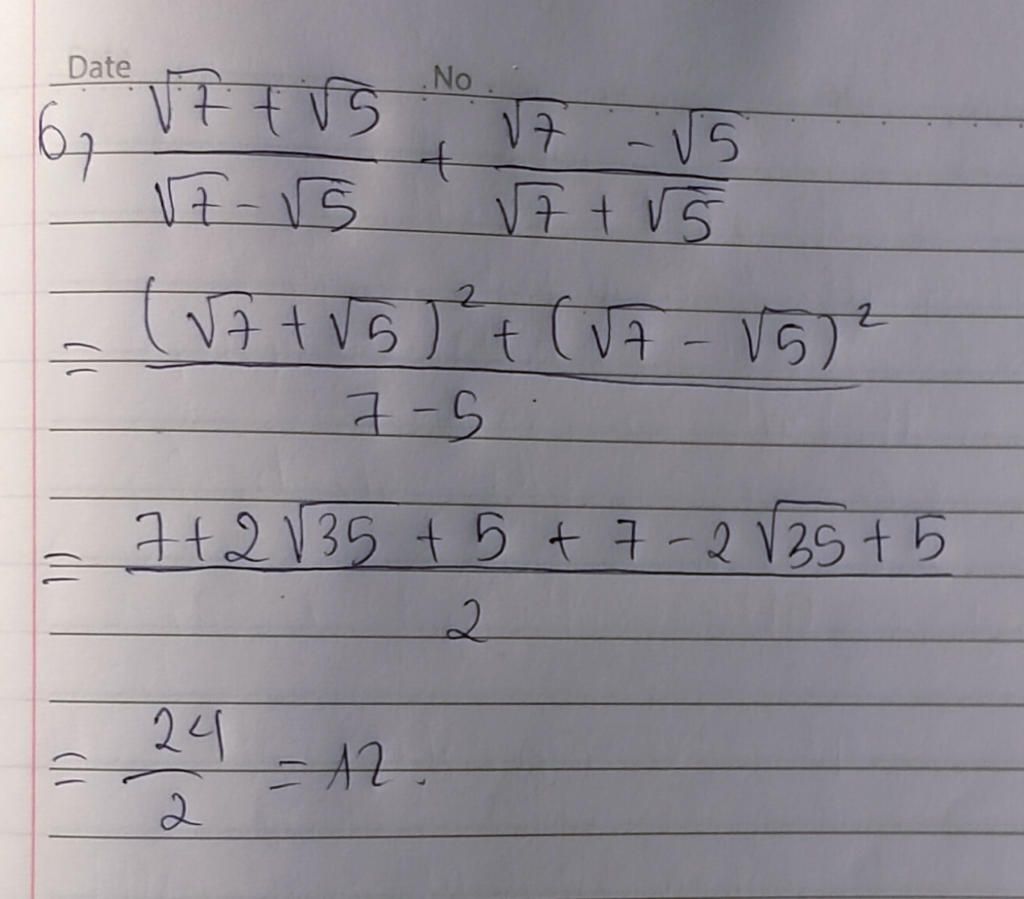 Date No
6, (√7 + √5)/(√7 - √5) + (√7 - √5)/(√7 + √5)
= ((√7 + √5)² + (√7 - √5)²)/(7 - 5)
= (7 + 2√35 + 5 + 7 - 2√35 + 5)/2
= 24/2 = 12.